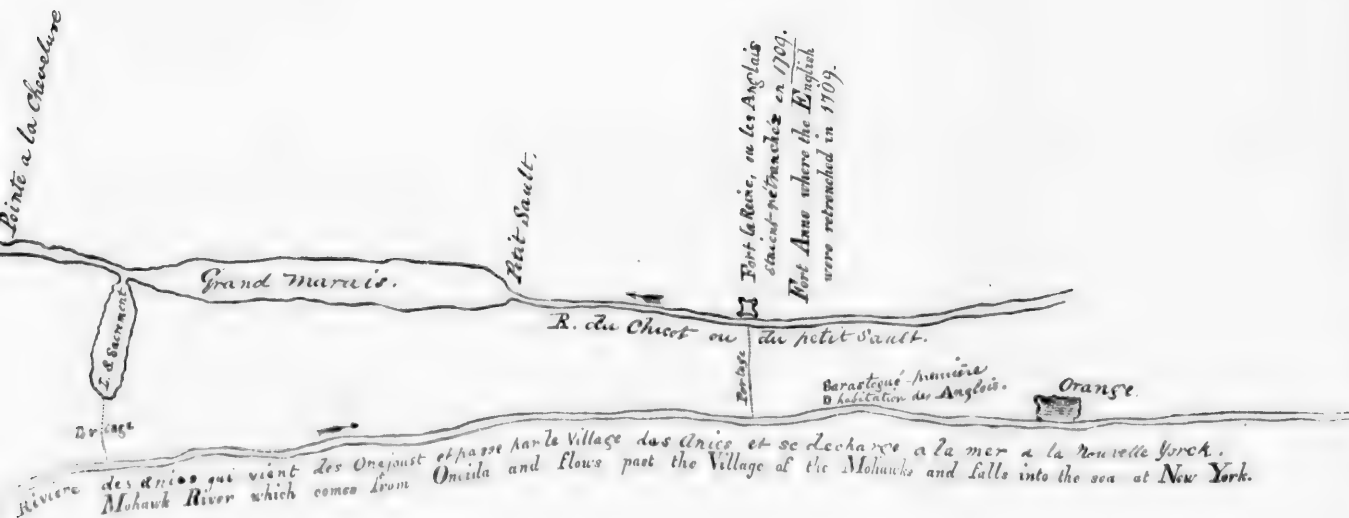 Pointe a la Chevelure
Grand marais.
Petit Sault.
Fort la Reine, ou les Anglais
étaient rétranchéz en 1709.
Fort Anne where the English
were retrenched in 1709.
L. S. Sacrement
R. du Chicot ou du petit Sault.
Portage
Sarastogué première
habitation des Anglois.
Orange.
Portage
Rivière des anies qui vient des Onejoust et passe par le Village des Anies et se decharge a la mer a la Nouvelle Yorck.
Mohawk River which comes from Oneida and flows past the Village of the Mohawks and falls into the sea at New York.